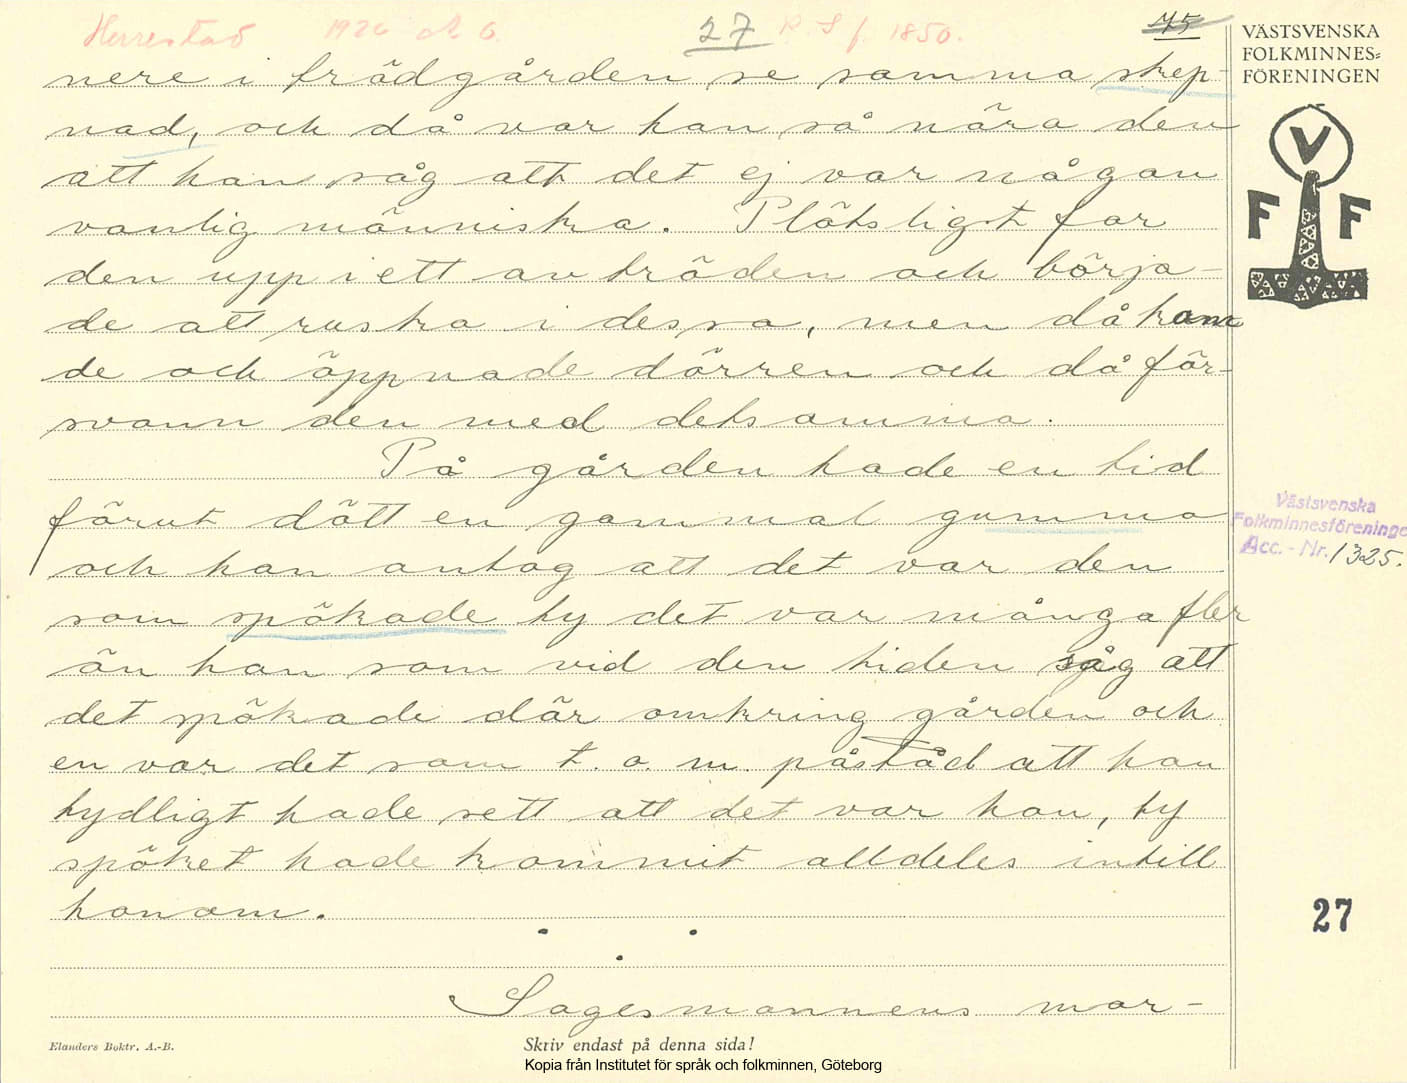 Herrestad 1926 A. G. 27 R. S. f. 1850. 75
VÄSTSVENSKA
FOLKMINNES=
FÖRENINGEN
V
F F
nere i trädgården se samma skep-
nad, och då var han så nära den
att han såg att det ej var någon
vanlig människa. Plötsligt far
den upp i ett av träden och börja-
de att ruska i dessa, men då kom
de och öppnade dörren och då för-
svann den med detsamma.
På gården hade en tid
förut dött en gammal gumma
och han antog att det var den
som spökade ty det var många fler
än han som vid den tiden såg att
det spökade där omkring gården och
en var det som t. o. m. påstod att han
tydligt hade sett att det var hon, ty
spöket hade kommit alldeles intill
honom.
Sagesmannens mor-
Västsvenska
Folkminnesföreninge
Acc. - Nr. 1325.
27
Elanders Boktr. A.-B.
Skriv endast på denna sida!
Kopia från Institutet för språk och folkminnen, Göteborg